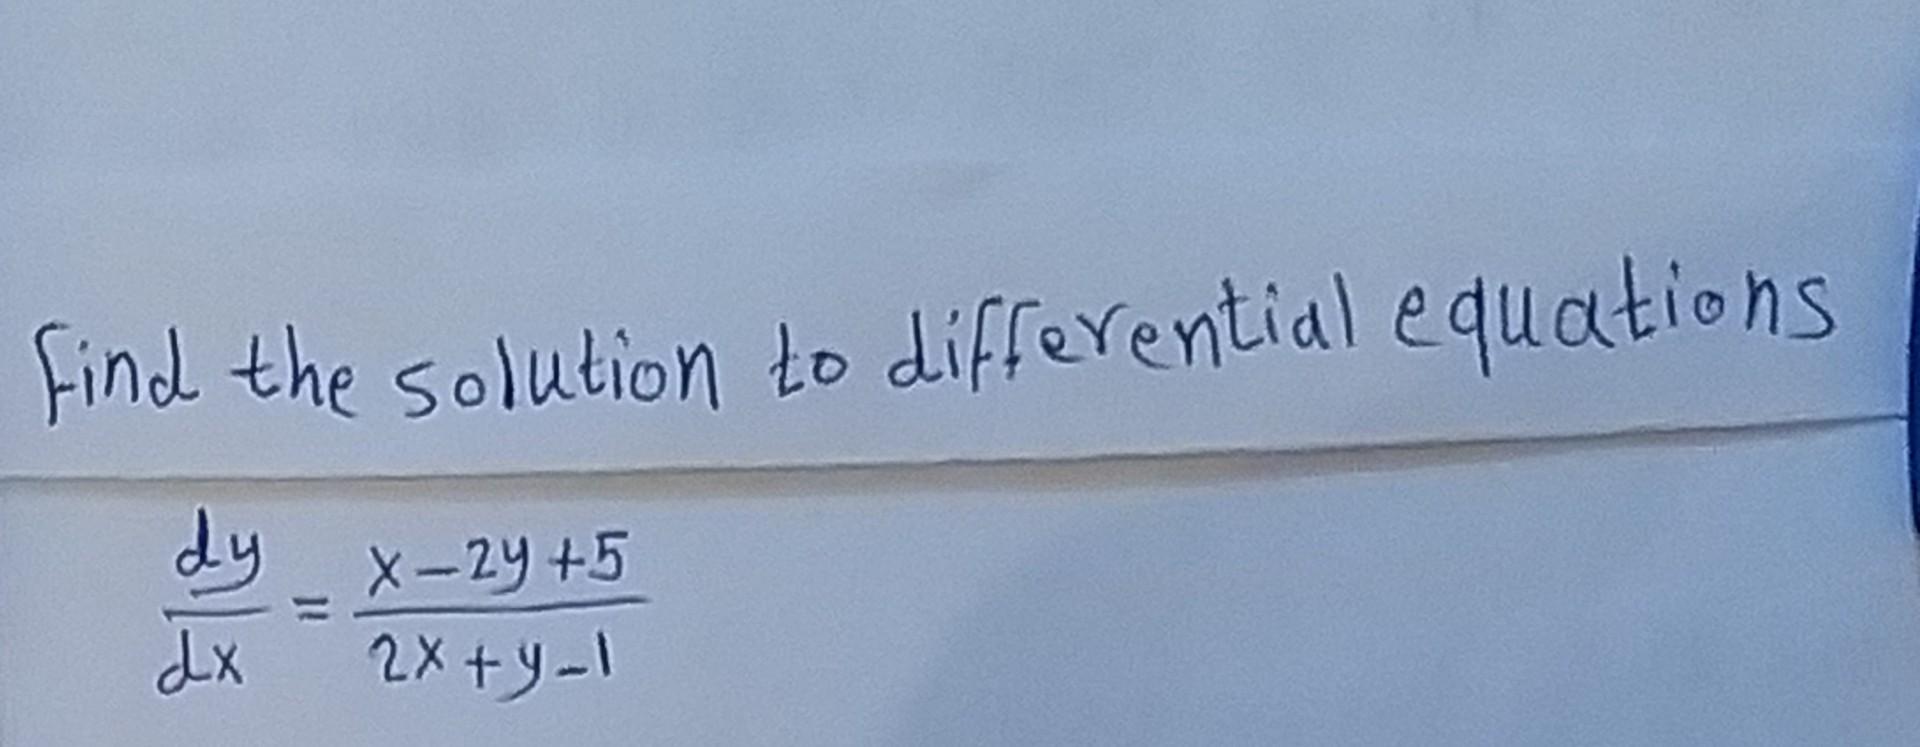 find the solution to differential equations
dy/dx = x-2y+5/2x+y-1